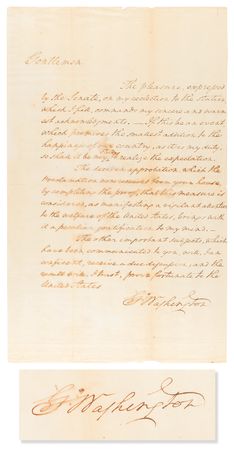 Gentlemen
The pleasure, expressed
by the Senate, on my reelection to the station
which I fill, commands my sincere and warm-
est acknowledgments. — If this be an event
which promises the smallest addition to the
happiness of our country, as it is my duty,
so shall it be my study to realize the expectation.
The decided approbation which the
Proclamation now receives from your house,
by completing the proof, that this measure is
considered, as manifesting a vigilant attention
to the welfare of the United States, brings with
it a peculiar gratification to my mind. —
The other important subjects, which
have been communicated to you, will, I am
confident, receive a due discussion, and the
result will, I trust, prove fortunate to the
United States
G: Washington
G: Washington